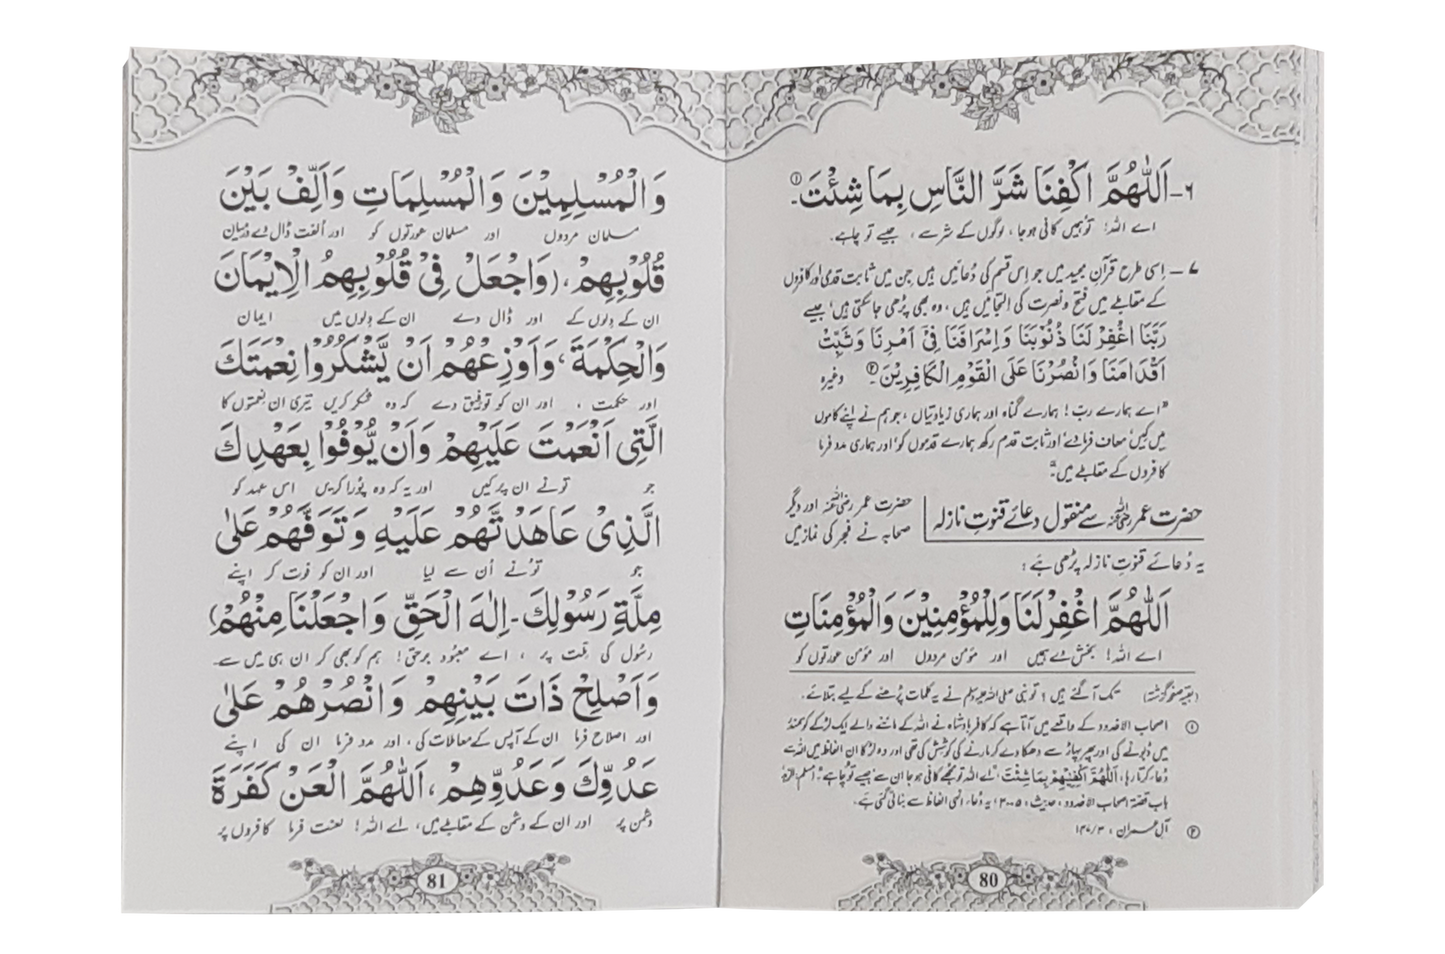 ۶- اَللّٰهُمَّ اكْفِنَا شَرَّ النَّاسِ بِمَا شِئْتَ۔ ①
اے اللہ! تو ہمیں کافی ہو جا، لوگوں کے شر سے، جیسے تو چاہے۔
۷- اِسی طرح قرآن مجید میں جو اِس قسم کی دُعائیں ہیں جن میں ثابت قدمی اور کافروں
کے مقابلے میں فتح و نصرت کی التجائیں ہیں، وہ بھی پڑھی جا سکتی ہیں، جیسے
رَبَّنَا اغْفِرْ لَنَا ذُنُوْبَنَا وَاِسْرَافَنَا فِيْٓ اَمْرِنَا وَثَبِّتْ
اَقْدَامَنَا وَانْصُرْنَا عَلَى الْقَوْمِ الْكَافِرِيْنَ۔ ② وغیرہ
"اے ہمارے ربّ! ہمارے گناہ اور ہماری زیادتیاں، جو ہم نے اپنے کاموں
میں کیں، معاف فرما دے، اور ثابت قدم رکھ ہمارے قدموں کو، اور ہماری مدد فرما
کافروں کے مقابلے میں"۔
حضرت عمر رضی اللہ عنہ سے منقول دعائے قنوتِ نازلہ
حضرت عمر رضی اللہ عنہ اور دیگر
صحابہ نے فجر کی نماز میں
یہ دُعائے قنوتِ نازلہ پڑھی ہے:
اَللّٰهُمَّ اغْفِرْ لَنَا وَلِلْمُؤْمِنِيْنَ وَالْمُؤْمِنَاتِ
اے اللہ! بخش دے ہمیں اور مؤمن مردوں اور مؤمن عورتوں کو
(بقیہ صفحہ گزشتہ) تک آگئے ہیں؟ تو نبی صلی اللہ علیہ وسلم نے یہ کلمات پڑھنے کے لیے بتلائے۔
① اصحاب الاخدود کے واقعے میں آتا ہے کہ کافر بادشاہ نے اللہ کے ماننے والے ایک لڑکے کو سمندر
میں ڈبونے کی اور پھر پہاڑ سے دھکا دے کر مارنے کی کوشش کی تھی اور وہ لڑکا ان الفاظ میں اللہ سے
دُعا کرتا رہا، اَللّٰهُمَّ اكْفِنِيْهِمْ بِمَا شِئْتَ، "اے اللہ تو مجھے کافی ہو جا ان سے جیسے تو چاہے"۔
باب قصۃ اصحاب الاخدود، حدیث، ۳۰۰۵، یہ دُعاء انہی الفاظ سے بنائی گئی ہے۔
② آل عمران، ۱۴۷/۳
80
وَالْمُسْلِمِيْنَ وَالْمُسْلِمَاتِ وَاَلِّفْ بَيْنَ
مسلمان مردوں اور مسلمان عورتوں کو اور اُلفت ڈال دے درمیان
قُلُوْبِهِمْ، (وَاجْعَلْ فِيْ قُلُوْبِهِمُ الْاِيْمَانَ
ان کے دِلوں کے اور ڈال دے ان کے دِلوں میں ایمان
وَالْحِكْمَةَ، وَاَوْزِعْهُمْ اَنْ يَّشْكُرُوْا نِعْمَتَكَ
اور حکمت، اور ان کو توفیق دے کہ وہ شکر کریں تیری ان نعمتوں کا
الَّتِيْ اَنْعَمْتَ عَلَيْهِمْ وَاَنْ يُّوْفُوْا بِعَهْدِكَ
جو تو نے ان پر کیں اور یہ کہ وہ پورا کریں اس عہد کو
الَّذِيْ عَاهَدْتَّهُمْ عَلَيْهِ وَتَوَفَّهُمْ عَلٰى
جو تُو نے اُن سے لیا اور ان کو فوت کر اپنے
مِلَّةِ رَسُوْلِكَ۔ اِلٰهَ الْحَقِّ وَاجْعَلْنَا مِنْهُمْ)
رسُول کی ملّت پر، اے معبُود برحق! ہم کو بھی کر ان ہی میں سے۔
وَاَصْلِحْ ذَاتَ بَيْنِهِمْ وَانْصُرْهُمْ عَلٰى
اور اصلاح فرما ان کے آپس کے معاملات کی، اور مدد فرما ان کی اپنے
عَدُوِّكَ وَعَدُوِّهِمْ، اَللّٰهُمَّ الْعَنْ كَفَرَةَ
دشمن پر اور ان کے دشمن کے مقابلے میں، اے اللہ! لعنت فرما کافروں پر
81